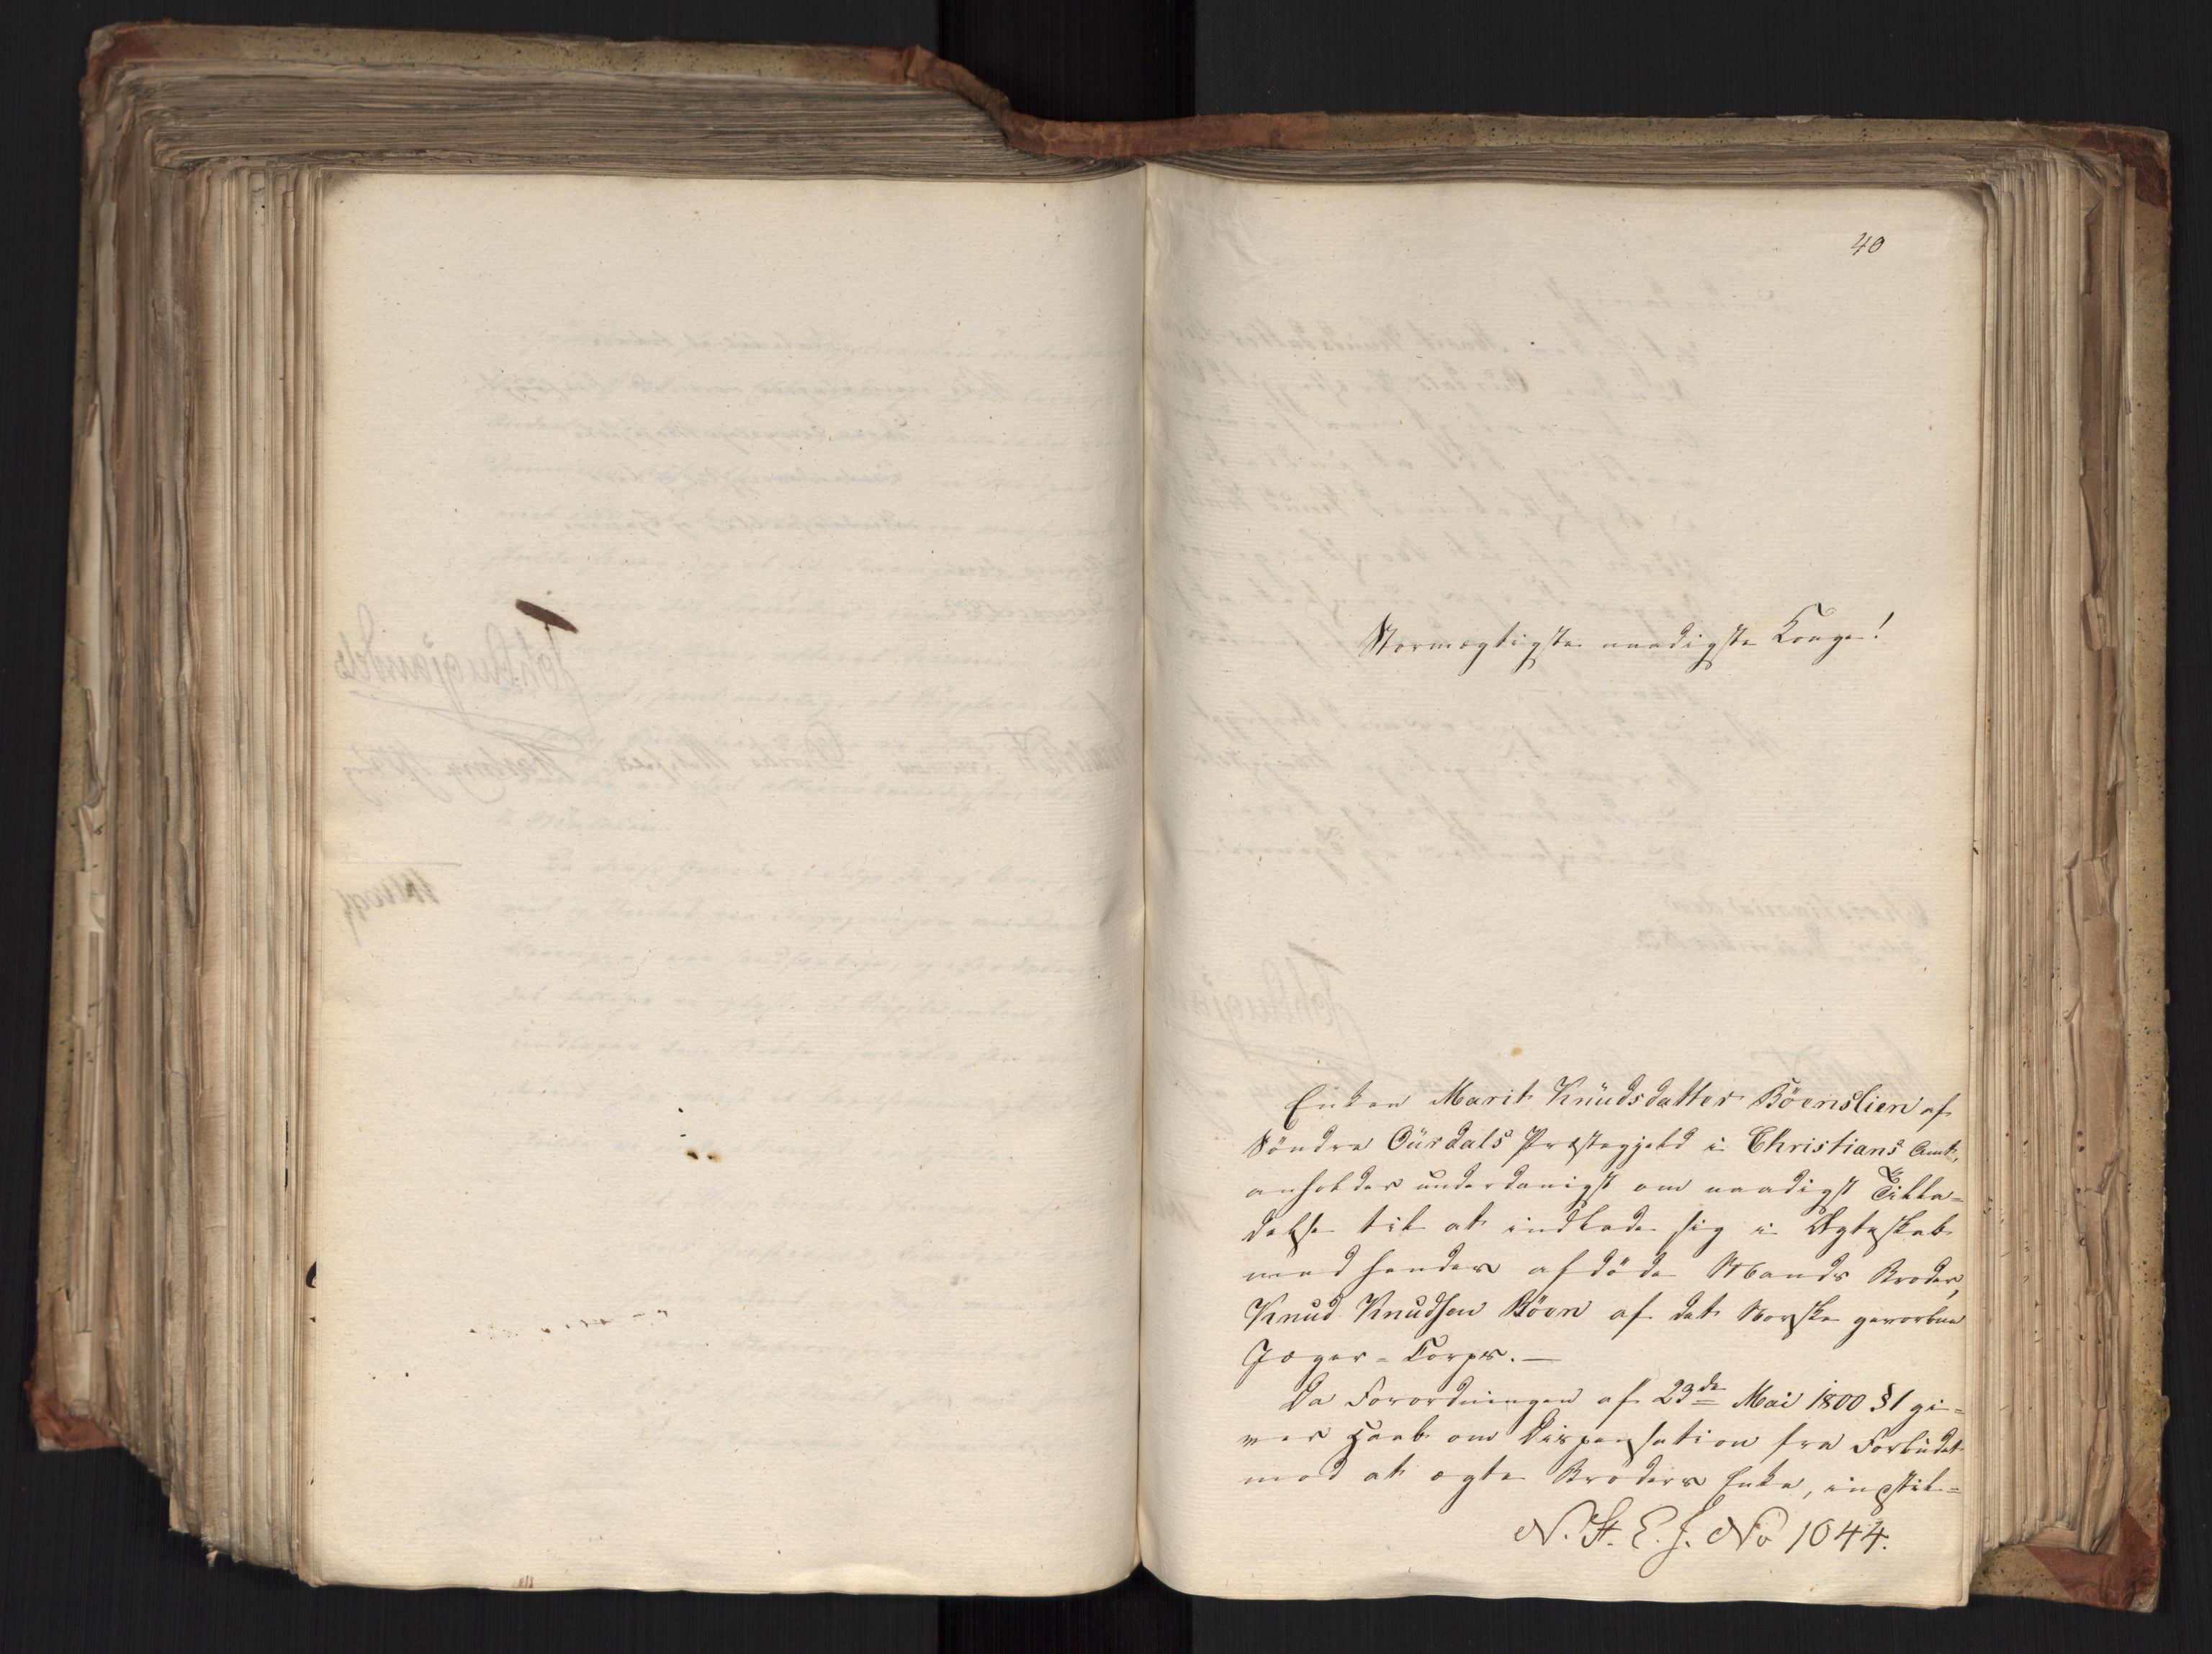 40
Stormægtigste naadigste Konge!
Enken Marit Knüdsdatter Böenslien af
Söndre Oürdals Præstegjeld i Christians Amt,
anholder underdanigst om naadigst Tilla=
delse til at indlade sig i Ægteskab
med hendes afdöde Mands Broder,
Knud Knudsen Böen af det Norske gevorbne
Jæger=Corps.—
Da Forordningen af 23de Mai 1800 §1 gi=
ver Haab om Dispensation fra Forbüdet
mod at ægte Broders Enke, instil=
N. St. E. J. No 1044.